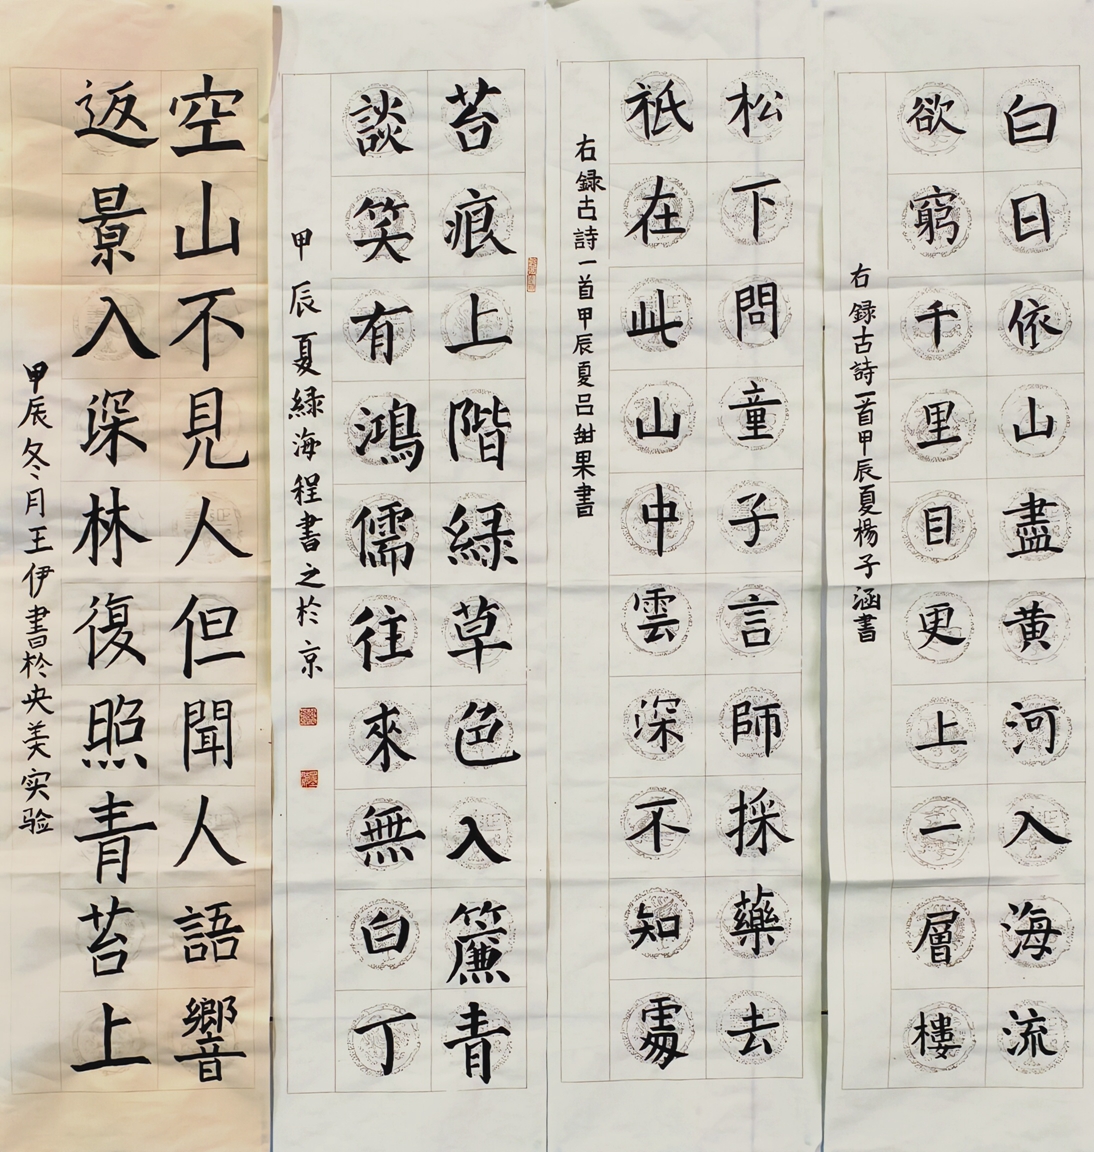 白日依山盡黄河入海流
欲窮千里目更上一層樓
右録古詩一首甲辰夏楊子涵書
松下問童子言師採藥去
祇在此山中雲深不知處
右録古詩一首甲辰夏吕甜果書
苔痕上階緑草色入簾青
談笑有鴻儒往來無白丁
甲辰夏緑海程書之於京
空山不見人但聞人語響
返景入深林復照青苔上
甲辰冬月王伊書於央美实验